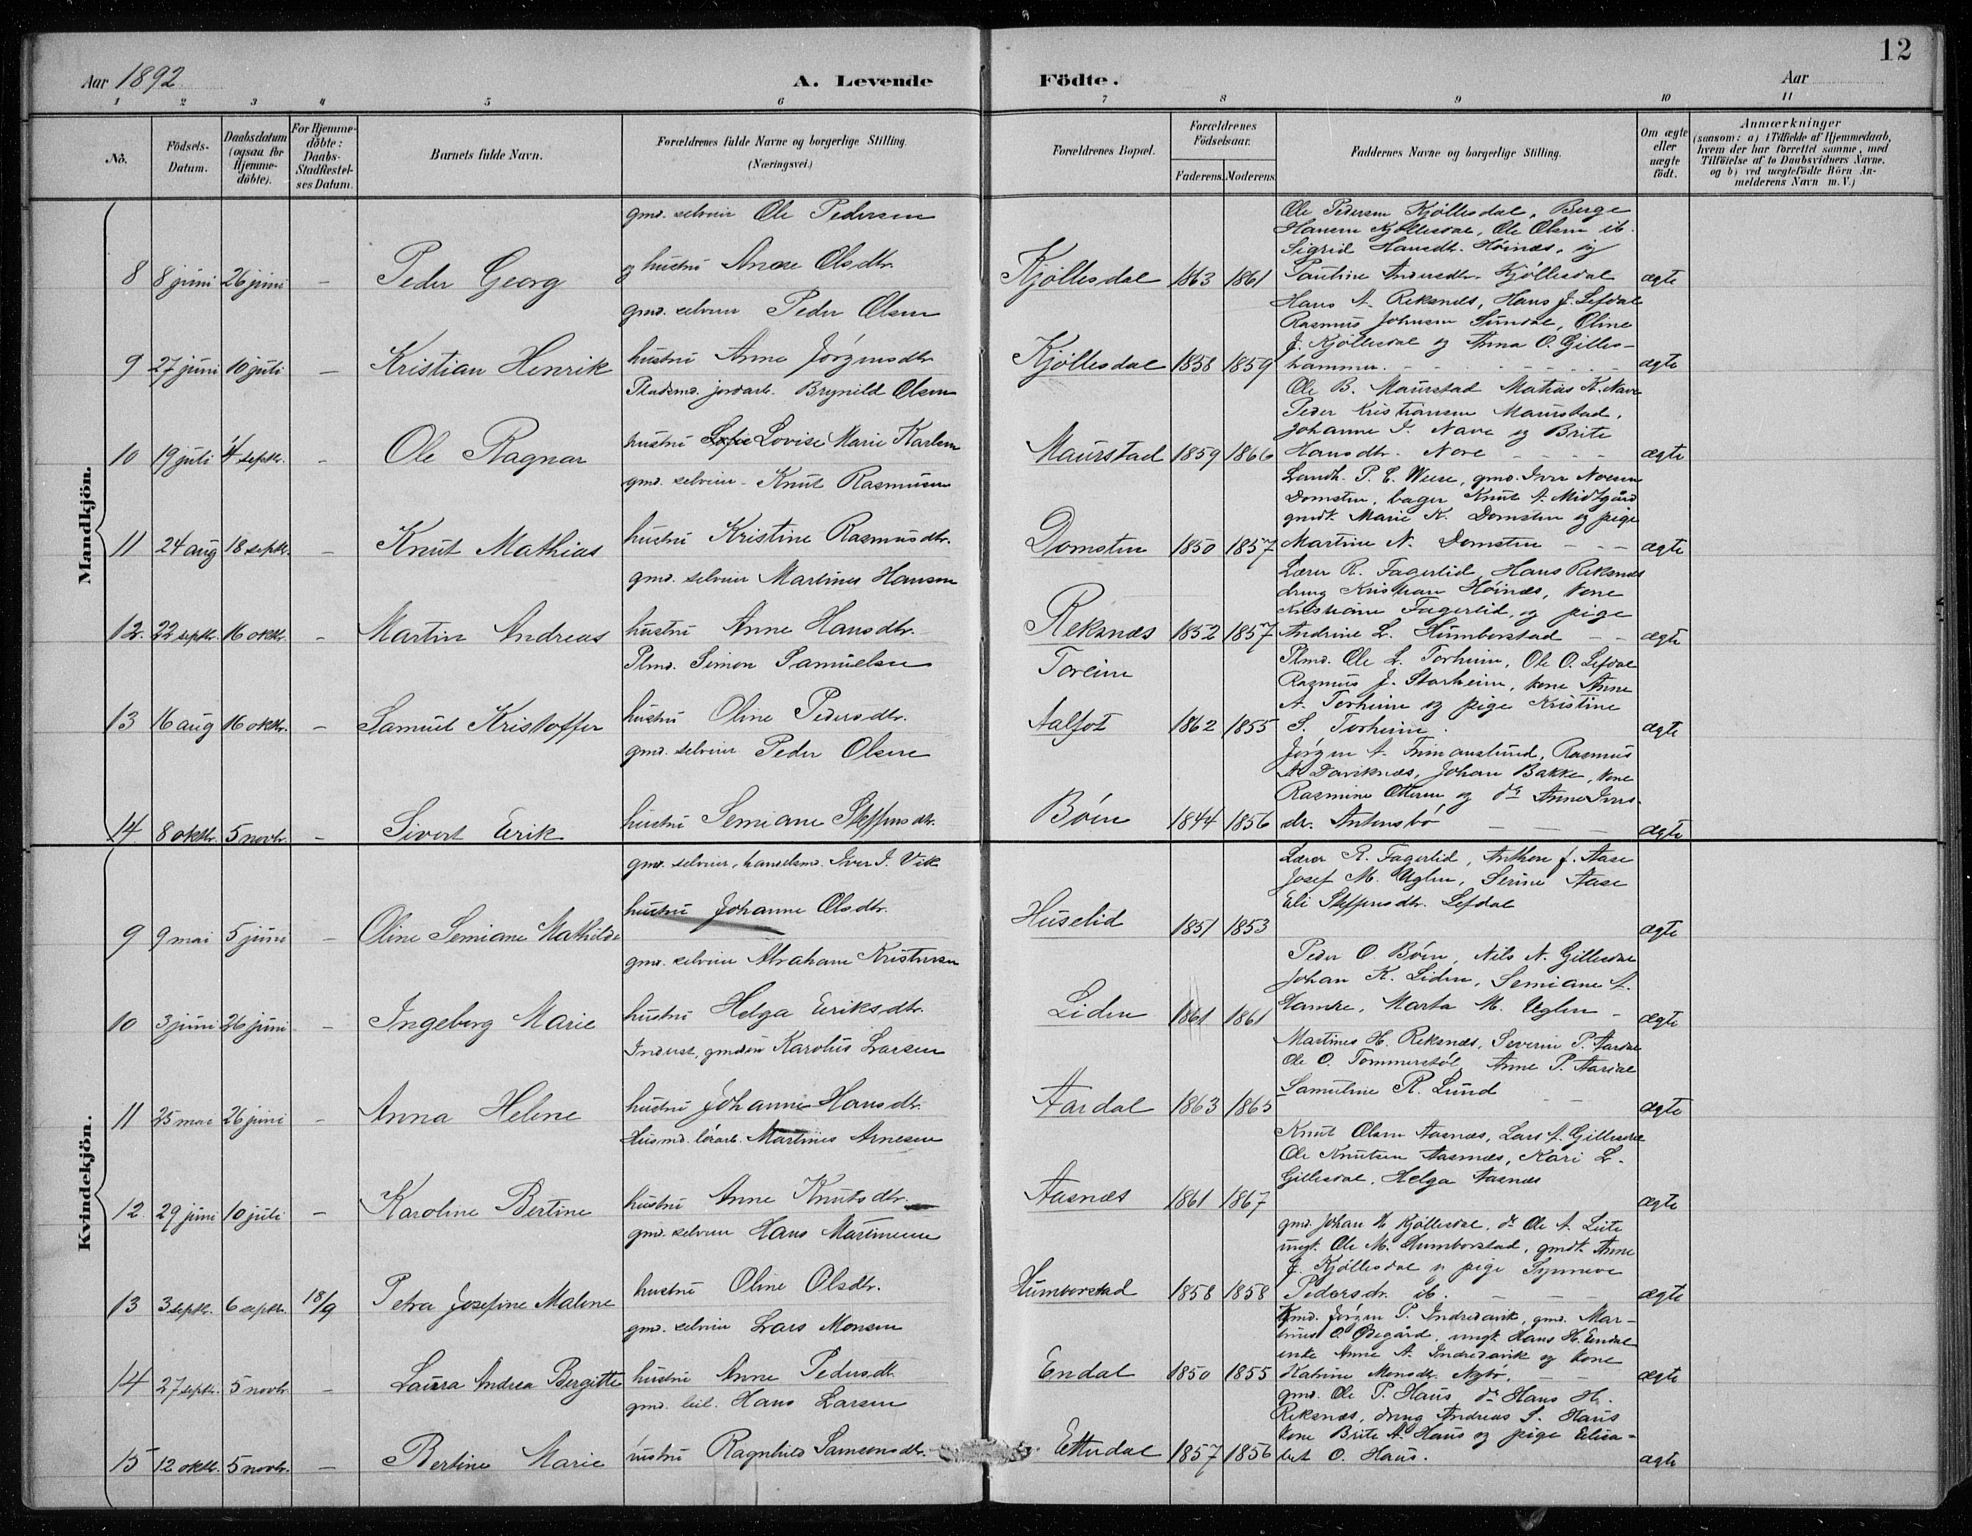 12
Aar 1892
A. Levende Födte.
Aar
1 2 3 4 5 6 7 8 9 10 11
No.
Födsels-Datum.
Daabsdatum (ogsaa for Hjemme-döbte).
For Hjemme-döbte: Daabs-Stadfæstel-ses Datum.
Barnets fulde Navn.
Forældrenes fulde Navne og borgerlige Stilling. (Næringsvei.)
Forældrenes Bopæl.
Forældrenes Födselsaar.
Faderens. Moderens.
Faddernes Navne og borgerlige Stilling.
Om ægte eller uægte födt.
Anmærkninger
(saasom: a) i Tilfælde af Hjemmedaab, hvem der har forrettet samme, med Tilföielse af to Daabsvidners Navne, og b) ved uægtefödte Börn An-melderens Navn m. V.)
Mandkjön.
8 8 juni 26 juni – Peder Georg
gmd. selveier Ole Pedersen
og hustru Anne Olsdtr.
Kjøllesdal 1863 1861
Ole Pedersen Kjøllesdal, Berge
Hansen Kjøllesdal, Ole Olsen ib.
Sigrid Hansdtr. Høinæs, og
Pauline Andersdtr. Kjøllesdal
ægte
9 27 juni 10 juli – Kristian Henrik
gmd. selveier Peder Olsen
hustru Anne Jørgensdtr.
Kjøllesdal 1858 1859
Hans A. Reksnæs, Hans J. Lefdal
Rasmus Johnsen Sundal, Oline
J. Kjøllesdal og Anna O. Gilles-
hammer.
ægte
10 19 juli 4 septbr. – Ole Ragnar
Pladsmd. jordarb. Brynild Olsen
hustru Lovise Marie Karlsen
Maurstad 1859 1866
Ole B. Maurstad Matias K. Nave
Peder Kristiansen Maurstad,
Johanne I. Nave og Brite
Hansdtr. Nove
ægte
11 24 aug 18 septbr. – Knut Mathias
gmd. selveier Knut Rasmusen
hustru Kristine Rasmusdtr.
Domsten 1850 1857
Landh. P. E. Weese, gmd. Iver Noesen
Domsten, bager Knut A. Midtgård
gmdt. Marie K. Domsten og pige
Martine N. Domsten
ægte
12. 22 septbr. 16 oktbr. – Martin Andreas
gmd. selveier Martines Hansen
hustru Anne Hansdtr.
Reksnæs 1852 1857
Lærer R. Fagerlid, Hans Reksnæs
dreng Kristian Høinæs, kone
Kristiane Fagerlid, og pige
Andrine L. Humborstad
ægte
13 16 aug 16 oktbr. – Samuel Kristoffer
Plmd. Simon Samuelsen
hustru Oline Pedersdtr.
Toreim
Aalfot 1862 1855
Plmd. Ole L. Torheim, Ole O. Lefdal
Rasmus J. Starheim, kone Anne
A. Torheim og pige Kristine
S. Torheim.
ægte
14 8 oktbr. 5 novbr. – Sivert Eirik
gmd. selveier Peder Olsen
hustru Semiane Steffensdtr.
Bøen 1844 1856
Jørgen A. Rasmus
A. Daviknæs, Johan Bakke, kone
Rasmine Otteren og do Anne Ivers-
dtr. Antensbø
ægte
Kvindekjön.
9 9 mai 5 juni – Oline Semiane Mathilde
gmd. selveier, handelsmd. Iver I. Vik
hustru Johanne Olsdtr.
Huselid 1851 1853
Lærer R. Fagerlid, Anthon J. Aase
Josef M. Uglen, Serine Aase
Eli Steffensdtr. Lefdal
ægte
10 3 juni 26 juni – Ingeborg Marie
gmd. selveier Abraham Kristensen
hustru Helga Eiriksdtr.
Liden 1861 1861
Peder O. Bøen, Nils N. Gillesdal
Johan K. Liden, Semiane A.
Hamre, Marta M. Uglen
ægte
11 25 mai 26 juni – Anna Helene
Inderst, gmdsøn Karolus Larsen
hustru Johanne Hansdtr.
Aardal 1863 1865
Martines H. Reksnæs, Severin P. Aardal
Ole O. Tommerstøl, Anne P. Aardal
Samuline R. Lund
ægte
12. 29 juni 10 juli – Karoline Bertine
Husmd. Martines Arnesen
hustru Anne Knutsdtr.
Aasnæs 1861 1867
Knut Olsen Aasnæs, Lars A. Gillesdal
Ole Knutsen Aasnæs, Kari L.
Gillesdal, Helga Aasnæs
ægte
13 3 septbr. 6 septbr. 18/9 Petra Josefine Malene
gmd. selveier Hans Martinusen
hustru Oline Olsdtr.
Humborstad 1858 1858
gmd. Johan H. Kjøllesdal, do Ole A. Leite
ungk. Ole M. Humborstad, gmdk. Anne
J. Kjøllesdal og pige Synneve
Pedersdr. ib.
ægte
14 27 septbr. 5 novbr. – Laura Andrea Bergitte
gmd. selveier Lars Monsen
hustru Anne Pedersdtr.
Endal 1850 1855
Gmd. Jørgen P. Indrevik, gmd. Mar-
tinus O. Ødegård, ungk. Hans H. Endal
enke Anne A. Indrevik og kone
Katrine Monsdtr. Nybø,
ægte
15 12 oktbr. 5 novbr. – Bertine Marie
gmd. leil. Hans Larsen
hustru Ragnhild Samsonsdtr.
Ettedal 1857 1856
gmd. Ole P. Haus do Hans H.
Reksnæs, dreng Andreas S. Haus
kone Brite A. Haus og pige Elisa-
bet O. Haus.
ægte